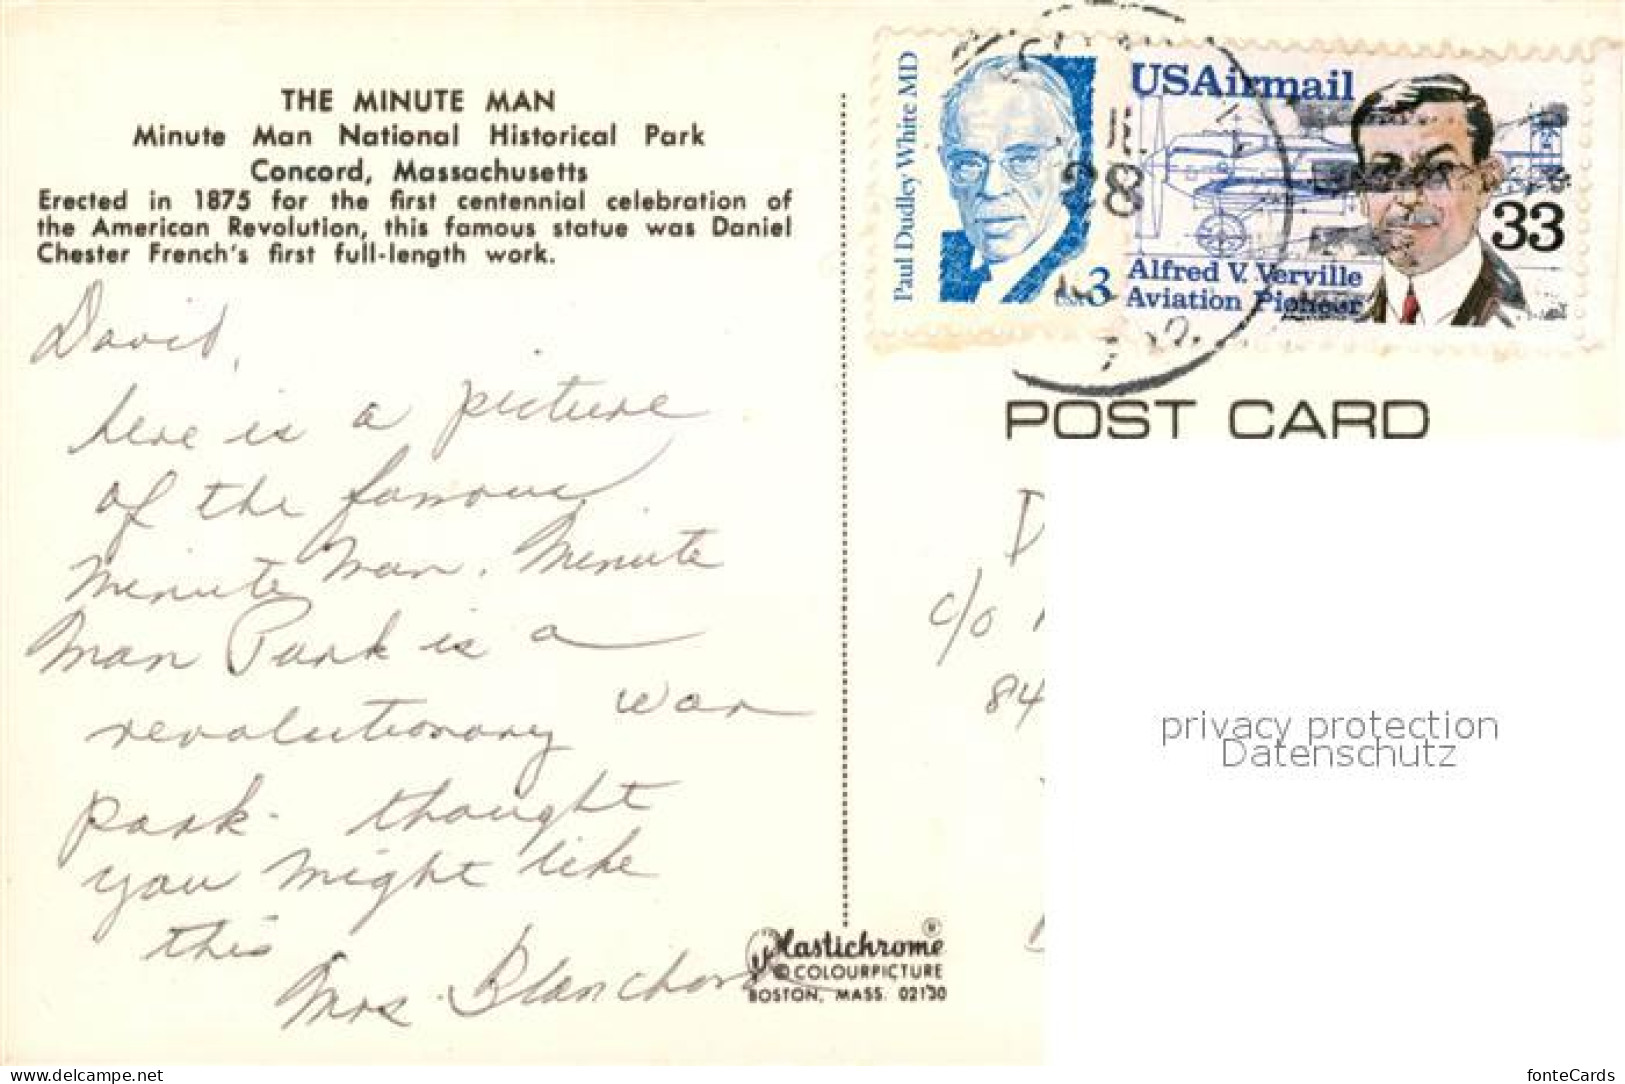 THE MINUTE MAN
Minute Man National Historical Park
Concord, Massachusetts
Erected in 1875 for the first centennial celebration of
the American Revolution, this famous statue was Daniel
Chester French's first full-length work.
David,
here is a picture
of the famous
Minute Man. Minute
Man Park is a
revolutionary war
park. thought
you might like
this
Mrs. Blanchard
Plastichrome ®
© COLOURPICTURE
BOSTON, MASS. 02130
Paul Dudley White MD
USA 3
USAirmail
33
Alfred V. Verville
Aviation Pioneer
28
POST CARD
D
c/o
84
privacy protection
Datenschutz
www.delcampe.net
fonteCards